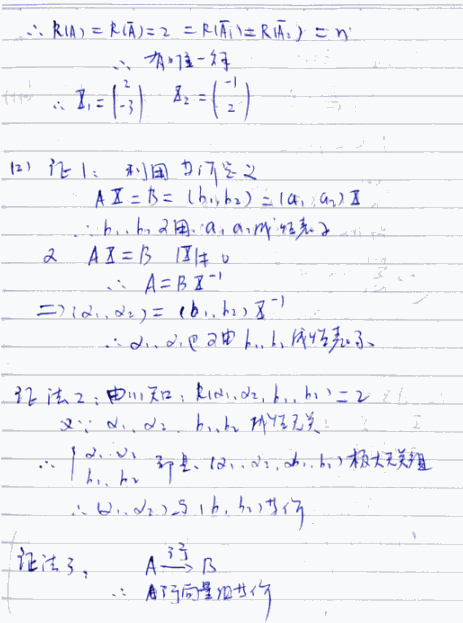 ∴ R(A) = R(Ā) = 2 = R(Ā₁) = R(Ā₂) = n
∴ 有唯一解
∴ X₁ = (2 -3) X₂ = (-1 2)
(2) 证1: 利用等价定义
AX = B = (b₁, b₂) = (a₁, a₂)X
∴ b₁, b₂ 可由 a₁, a₂ 线性表示
又 AX = B |X| ≠ 0
∴ A = BX⁻¹
⇒ (α₁, α₂) = (b₁, b₂)X⁻¹
∴ α₁, α₂ 也可由 b₁, b₂ 线性表示
证法2: 由(1)知: R(α₁, α₂, b₁, b₂) = 2
又∵ α₁, α₂, b₁, b₂ 线性无关
∴ { α₁, α₂ b₁, b₂ 都是 (α₁, α₂, b₁, b₂) 极大无关组
∴ (α₁, α₂) 与 (b₁, b₂) 等价
证法3, A →行 B
∴ 行向量组等价